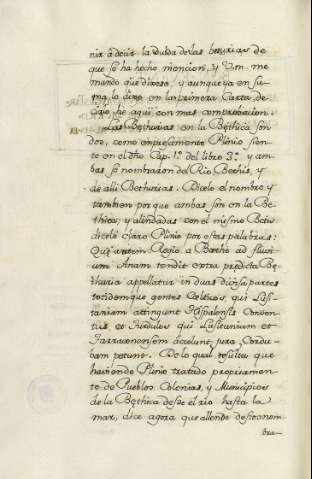 nir à decir la duda de las beturias de
que se ha hecho mencion, y Vm. me
mandò que dixese, y aunque ya en su-
ma lo dixe en la primera Carta de-
cirlo hè aqui con mas comprobacion.
Las Bethurias en la Bethica son
dos, como expresamente Plinio sien-
te en el dho Cap. 1º del libro 3º. y am-
bas se nombraron del Rio Bethis, y
de alli Bethurias. Dicelo el nombre y
tambien por que ambas son en la Be-
thica, y alindadas con el mismo Betis
dicelo claro Plinio por estas palabras:
Que autem Regio a Baethi ad fluvi-
um Anam tendit extra predicta Be-
thuria appellatur in duas divisa partes
totidemque gentes Celticos, qui Lusi-
taniam attingunt Hispalensis Conven-
tus, et Turdulos qui Lusitaniam et
Tarraconensem accolunt, jura Cordu-
bam petunt. De lo qual resulta que
haviendo Plinio tratado propisamen-
te de Pueblos Colonias, y Municipios
de la Bethica desde el rio hasta la
mar, dice agora que allende de
bra-